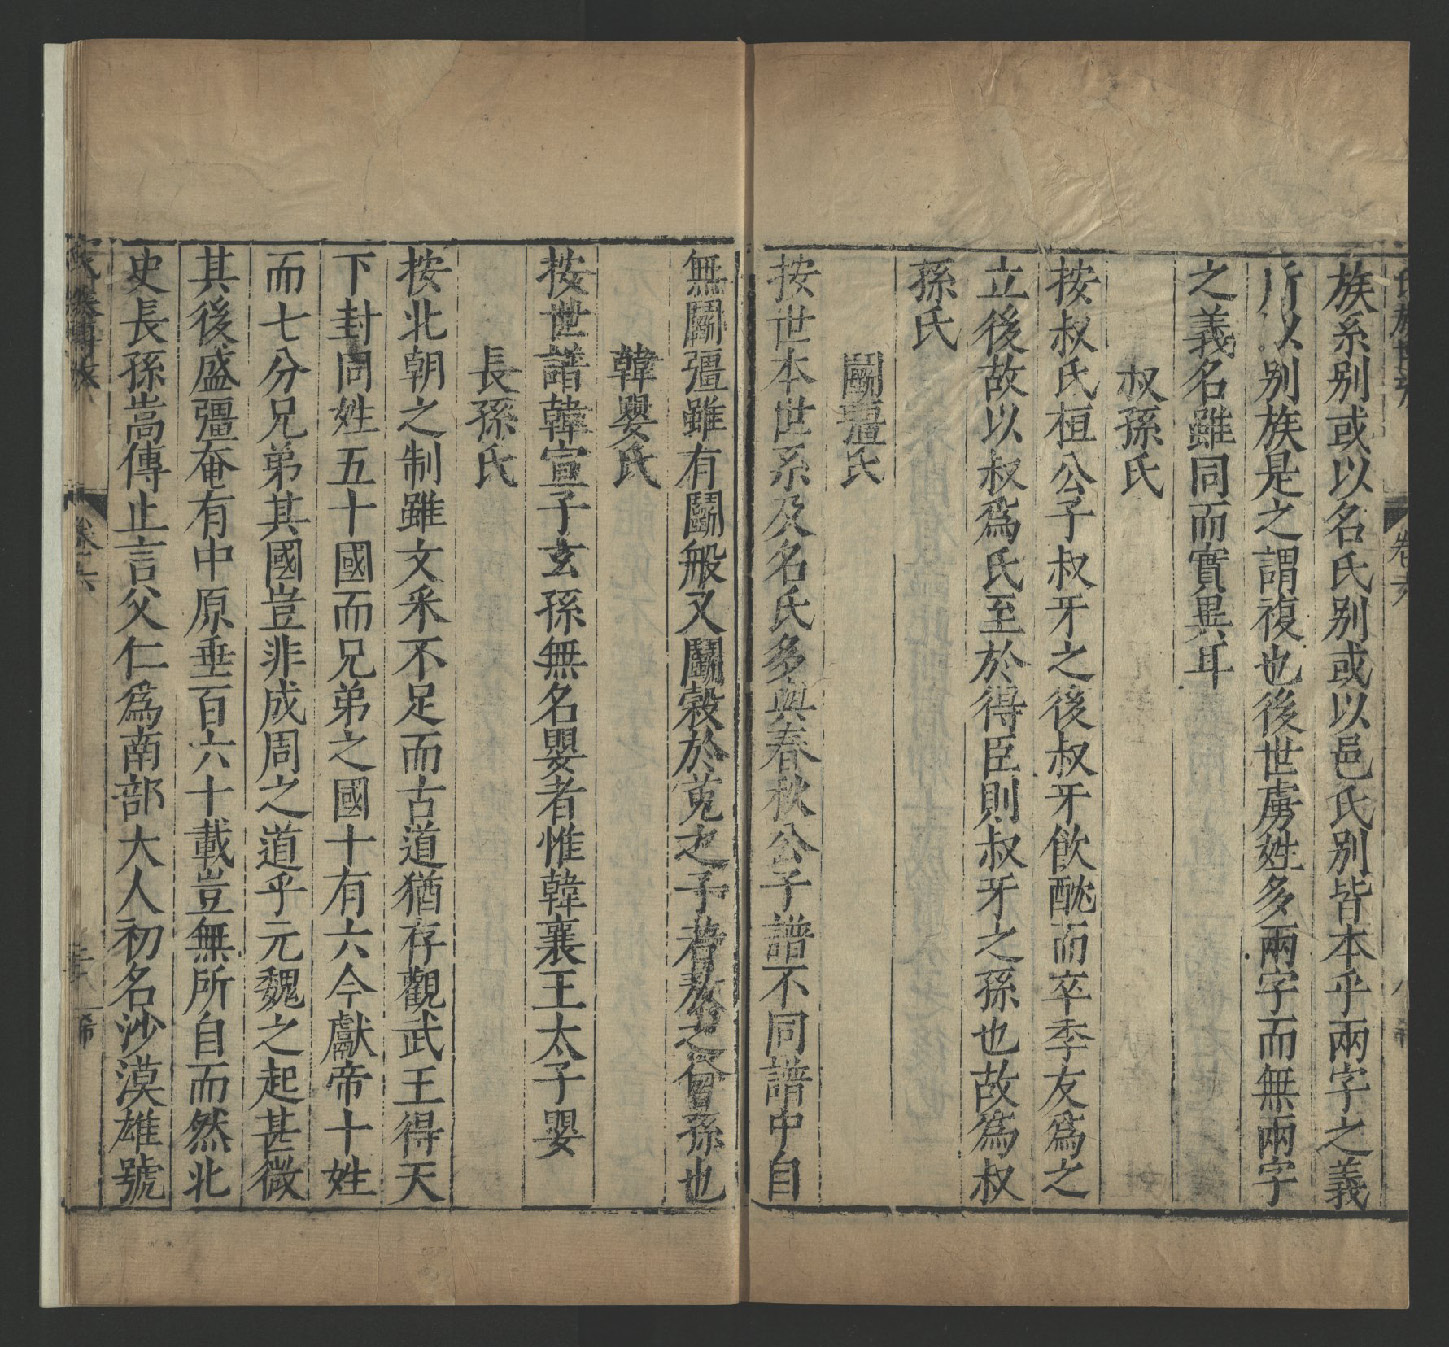 族系别或以名氏别或以邑氏别皆本乎兩字之義
所以别族是之謂複也後世虜姓多兩字而無兩字
之義名雖同而實異耳
叔孫氏
按叔氏桓公子叔牙之後叔牙飲酖而卒季友爲之
立後故以叔爲氏至於得臣則叔牙之孫也故爲叔
孫氏
鬭彊氏
按世本世系及名氏多與春秋公子譜不同譜中自
無鬭彊雖有鬭般又鬭榖於菟之子者敖之曾孫也
韓嬰氏
按世譜韓宣子玄孫無名嬰者惟韓襄王太子嬰
長孫氏
按北朝之制雖文釆不足而古道猶存觀武王得天
下封同姓五十國而兄弟之國十有六今獻帝十姓
而七分兄弟其國豈非成周之道乎元魏之起甚微
其後盛彊奄有中原垂百六十載豈無所自而然北
史長孫嵩傳止言父仁爲南部大人初名沙漠雄號
卷六